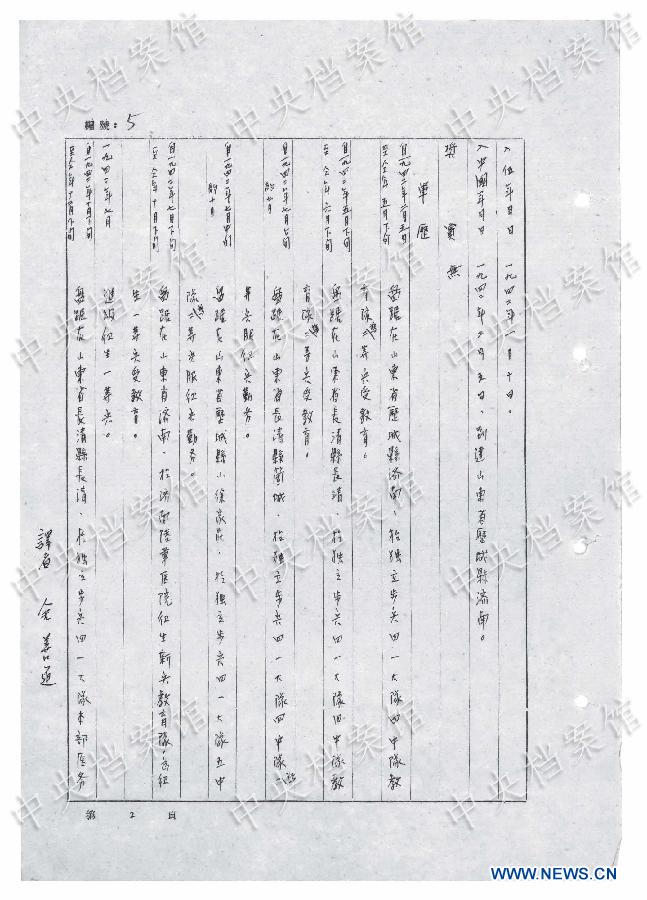 編號：5
入伍年月日 一九四二年一月十日。
入中國年月日 一九四二年二月五日、到達山東省歷城縣濟南。
獎賞 無
軍歷
自一九四二年二月五日
至仝年五月下旬
盤踞在山東省歷城縣濟南、於獨立步兵四一大隊四中隊教
育隊二等兵受教育。
自一九四二年五月下旬
至仝年六月下旬
盤踞在山東省長清縣長清、於獨立步兵四一大隊四中隊教
育隊二等兵受教育。
盤踞在山東省長清縣、於獨立步兵四一大隊四中隊二
等兵服任兵勤務。
自一九四二年七月中旬
盤踞在山東省歷城縣小徐家莊、於獨立步兵四一大隊五中
隊二等兵服任兵勤務。
自一九四二年七月下旬
至仝年十月下旬
盤踞在山東省濟南、於濟南陸軍醫院衛生新兵教育隊、
生一等兵受教育。
一九四二年七月
進級衛生一等兵。
自一九四二年十月下旬
至仝年十一月下旬
盤踞在山東省長清縣長清、於獨立步兵四一大隊本部醫務
譯者
第 2 頁
中央档案馆
WWW.NEWS.CN